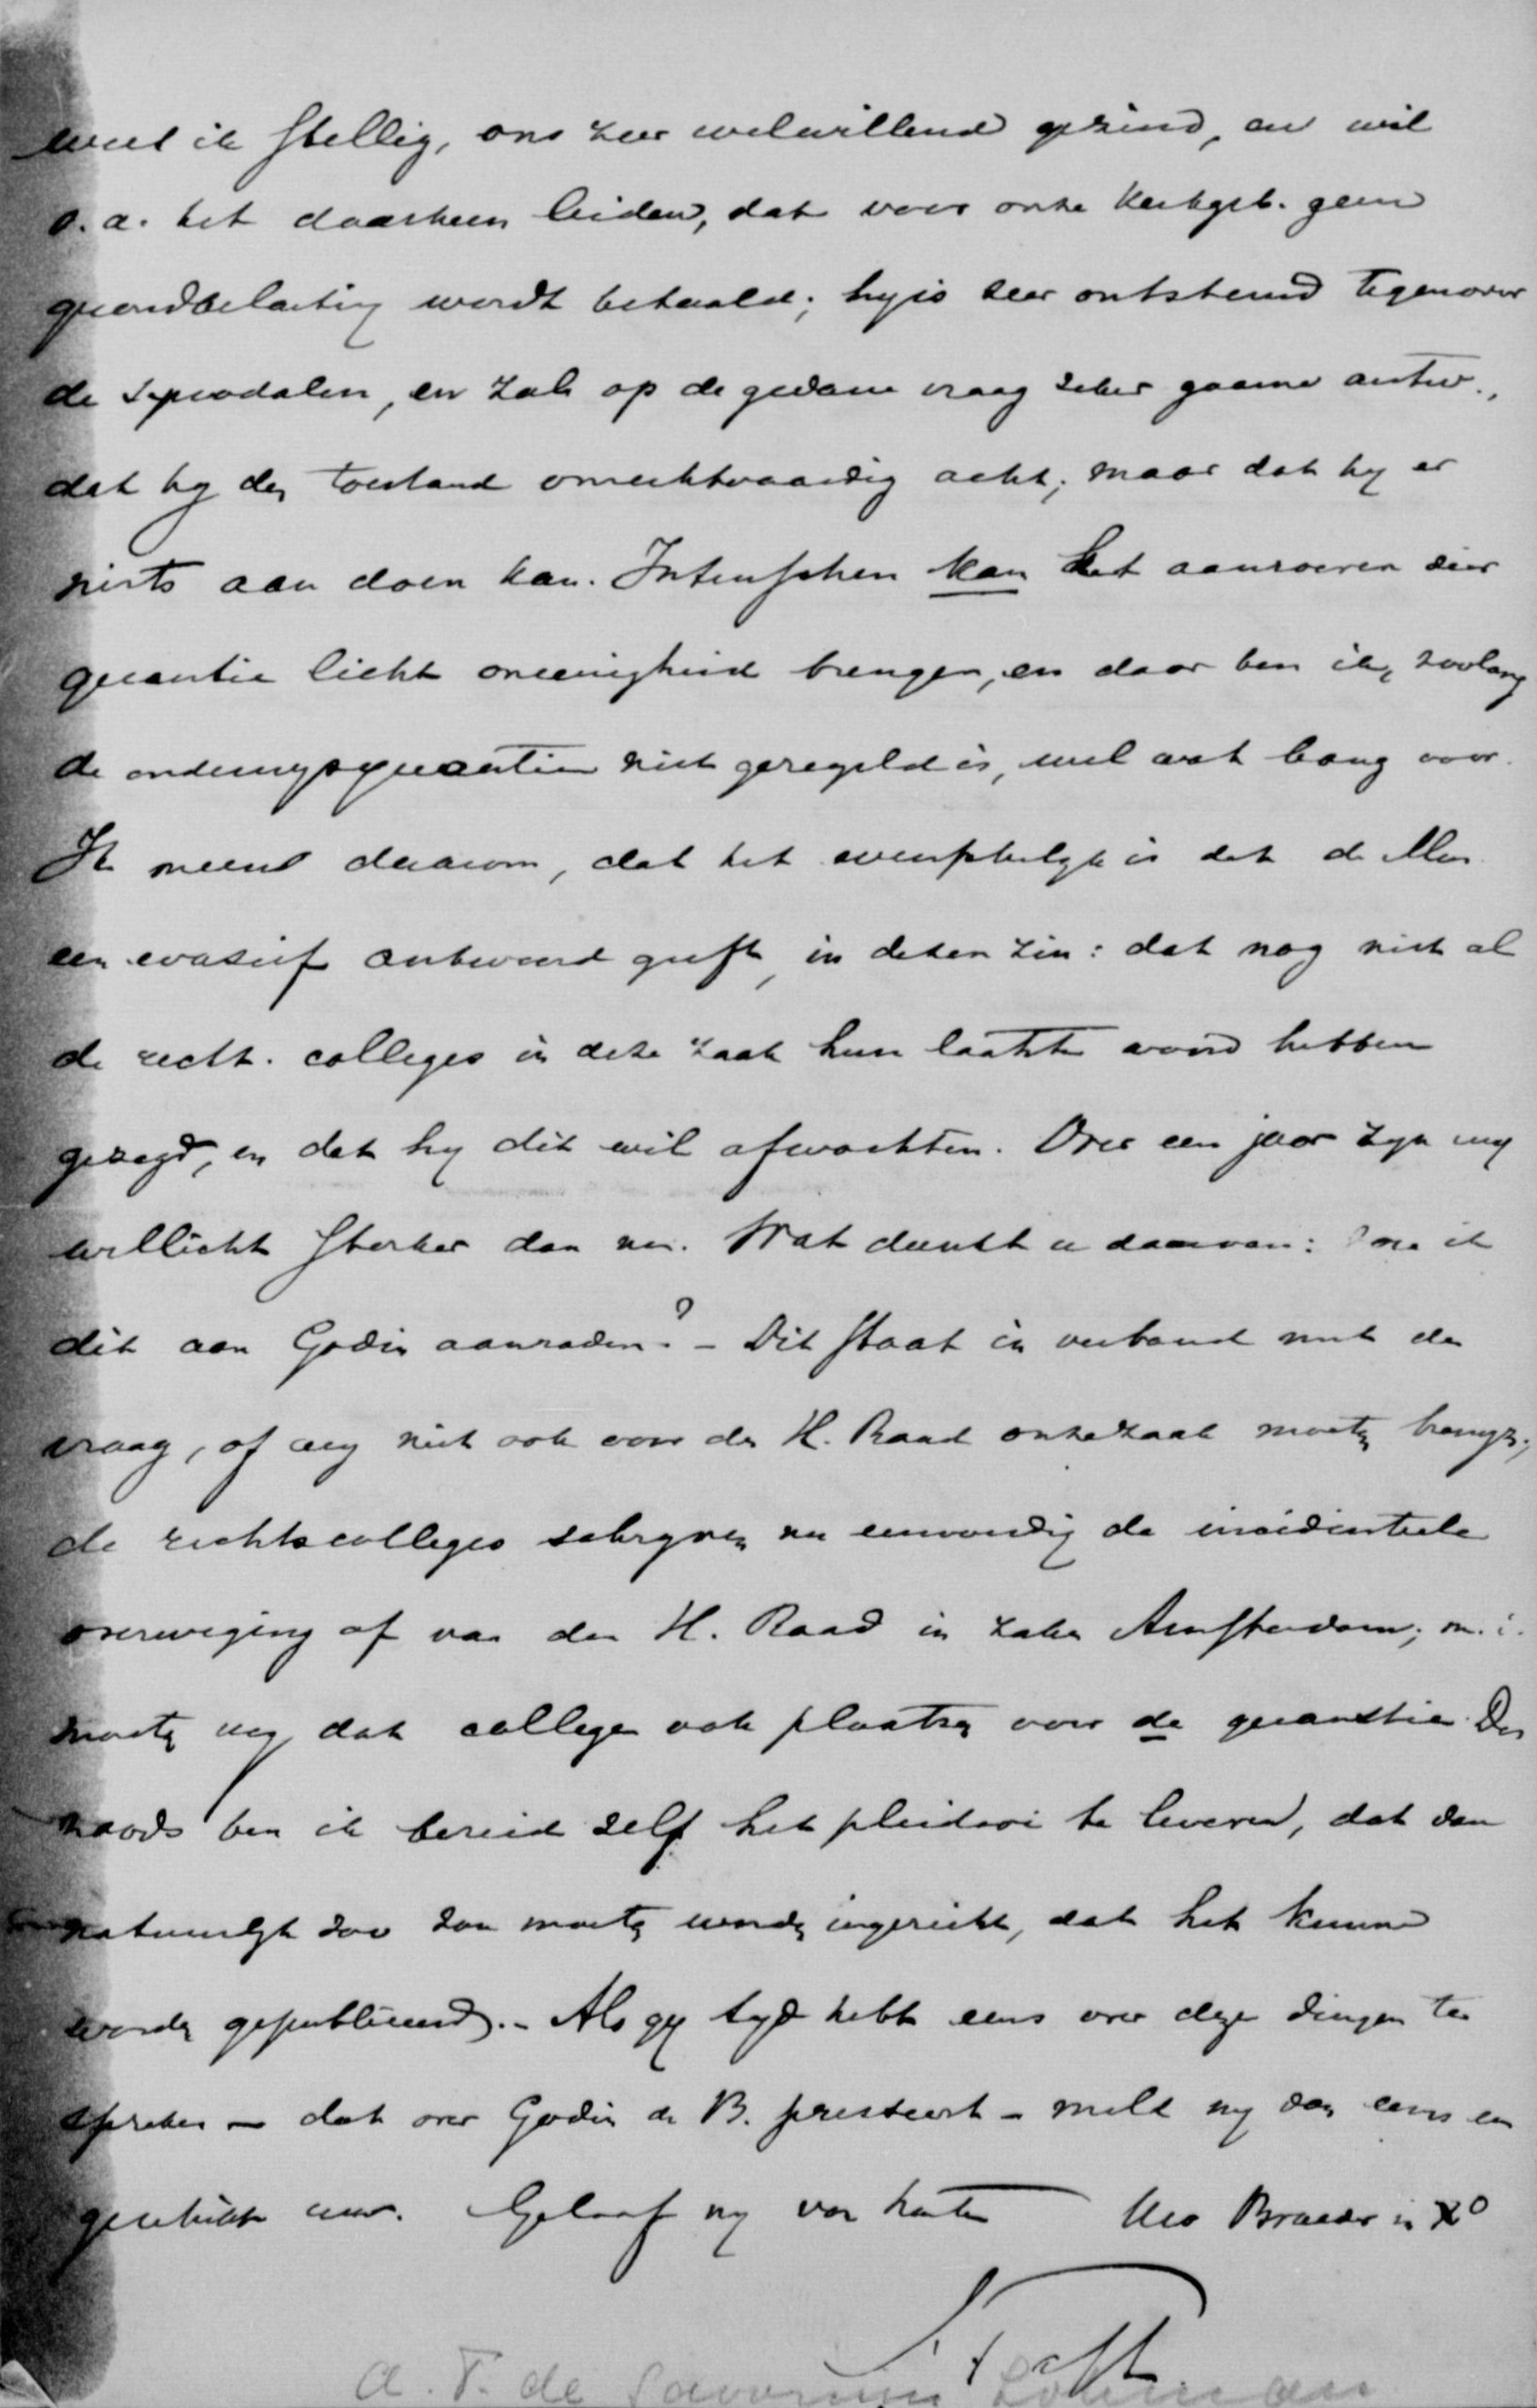 weet ik stellig, ons zeer welwillend gezind, en wil
o.a. het daarheen leiden, dat voor onze kerkgeb. geen
grondbelasting wordt betaald; hy is zeer ontstemd tegenover
de synodalen, en zal op de gedane vraag zeker gaarne antw.,
dat hy den toestand onrechtvaardig acht; maar dat hy er
niets aan doen kan. Intusschen kan het aanroeren dier
quaestie licht oneenigheid brengen, en daar ben ik, zoolang
de onderwysquaestie niet geregeld is, wel wat bang voor.
Ik meen daarom, dat het wenschelyk is dat de Min.
een evasief antwoord geeft, in dezen zin: dat nog niet al
de recht. colleges in deze zaak hun laatste woord hebben
gezegd, en dat hy dit wil afwachten. Over een jaar zyn wy
wellicht sterker dan nu. Wat dunkt u daarvan: ik
dit aan Godin aanraden? - Dit staat in verband met de
vraag, of wy niet ook voor den H. Raad onze zaak moeten brengen;
de rechtscolleges schryven nu eenvoudig de incidenteele
overweging af van den H. Raad in zake Amsterdam; m.i.
moeten wy dat college ook plaatsen voor de quaestie. Des
noods ben ik bereid zelf het pleidooi te leveren, dat dan
natuurlyk zoo zou moeten worden ingericht, dat het kunne
worden gepubliceerd. - Als gy tyd hebt eens over deze dingen te
spreken - dat over Godin de B. presseert - meld my dan eens een
geschikt uur. Geloof my van harte Uw Broeder in Xo
A. F. de Savornin Lohman